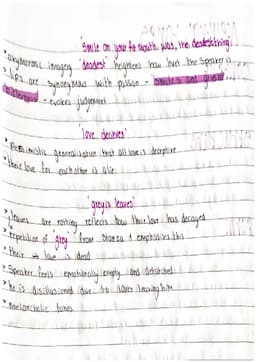 'Smile on your mouth was, the deadest thing'
imagery 'deadest' heightens how hurt the speaker is
lips are synonymous with passion -
- evokes judgement
'love deceives'
Pessimistic generalisation that all love is deceptive
their love for each other is a lie.
'greyish leaves'
leaves are rotting, reflects how their love has decayed
repetition of 'grey' from stanza 1 emphasises this
their love is dead
Speaker feels emotionally empty and detached
he is disillusioned due to lover leaving him
melancholic tones